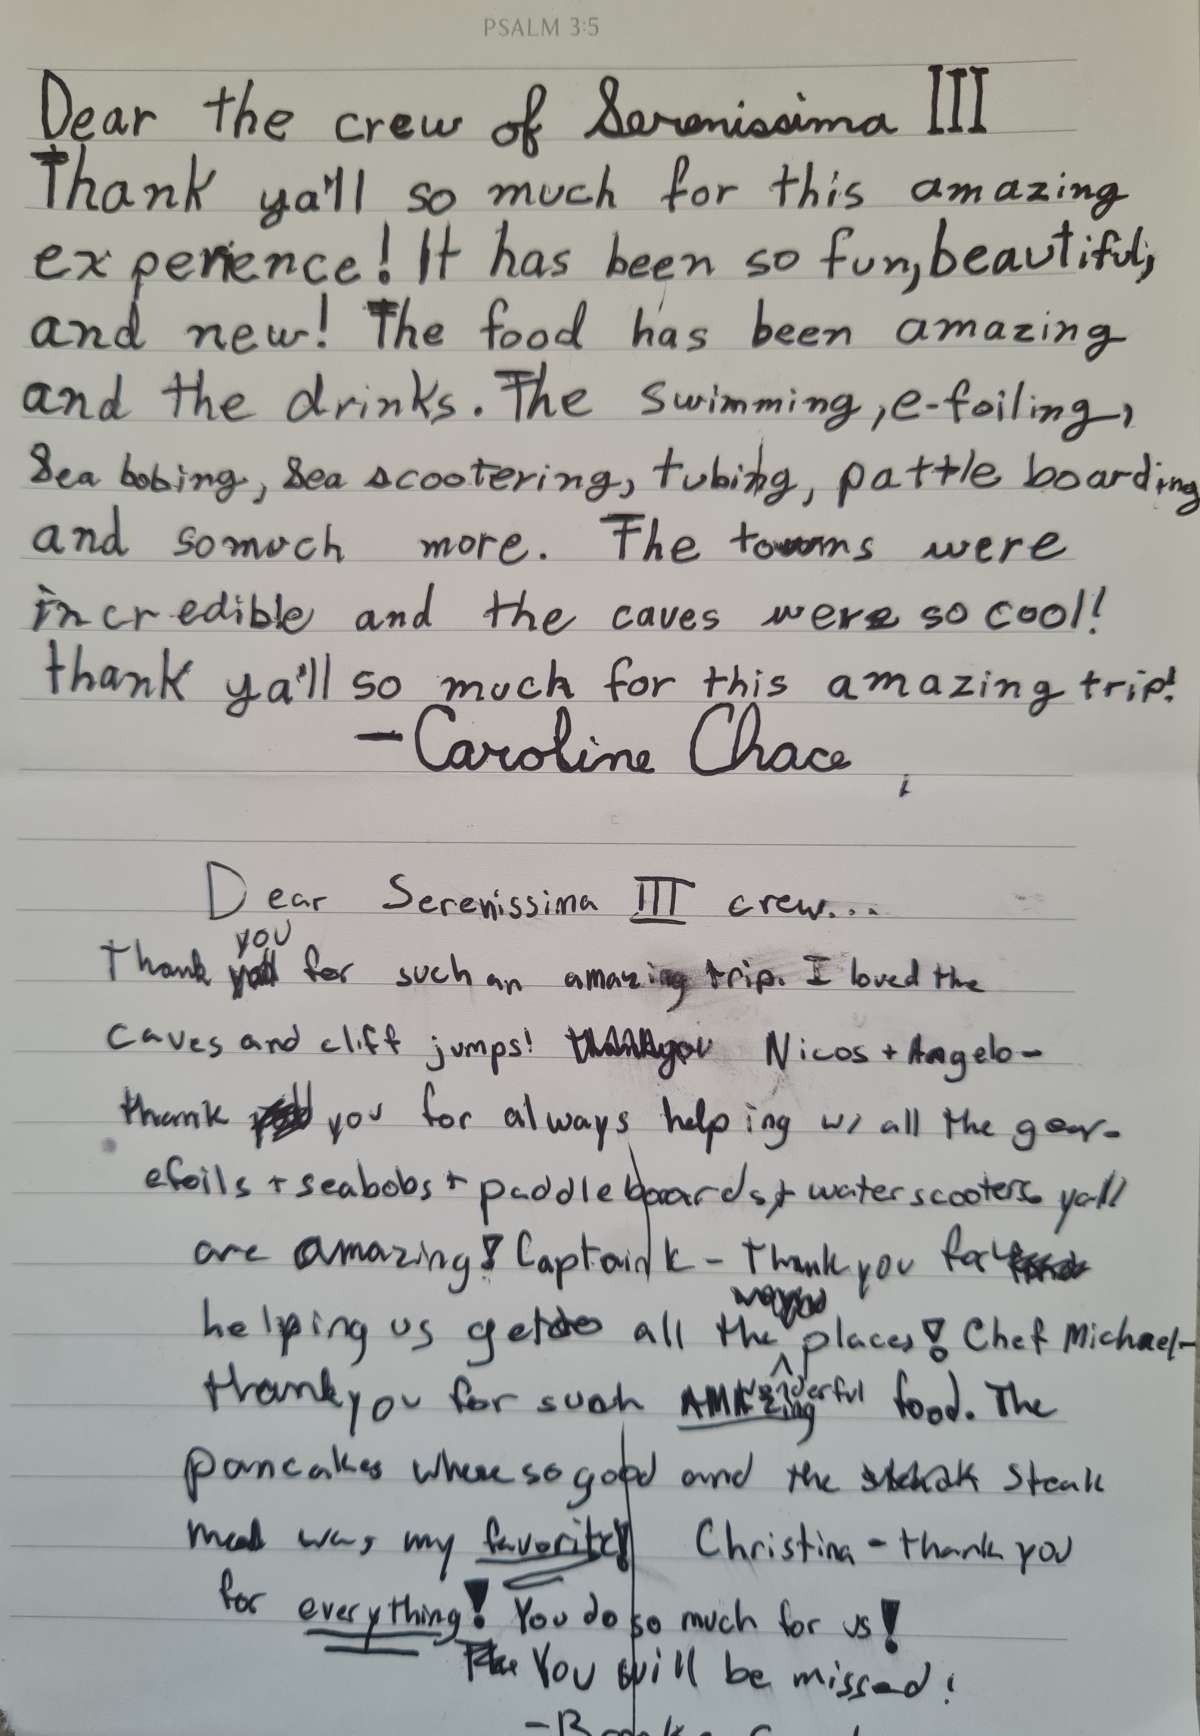 PSALM 3:5
Dear the crew of Serenissima III
Thank ya'll so much for this amazing
experience! It has been so fun, beautiful,
and new! The food has been amazing
and the drinks. The swimming, e-foiling,
Sea bobing, Sea scootering, tubing, pattle boarding
and somuch more. The towns were
incredible and the caves were so cool!
thank ya'll so much for this amazing trip!
- Caroline Chace
Dear Serenissima III crew...
you
Thank for such an amazing trip. I loved the
caves and cliff jumps! Nicos + Angelo-
thank you for always helping w/ all the gear-
efoils + seabobs + paddleboards + water scooters yall
are amazing! Captain K - Thank you for
helping us get to all the places! Chef Michael-
thank you for such AMAZING wonderful food. The
pancakes where so good and the steak
meal was my favorite! Christina - thank you
for everything! You do so much for us!
You will be missed!